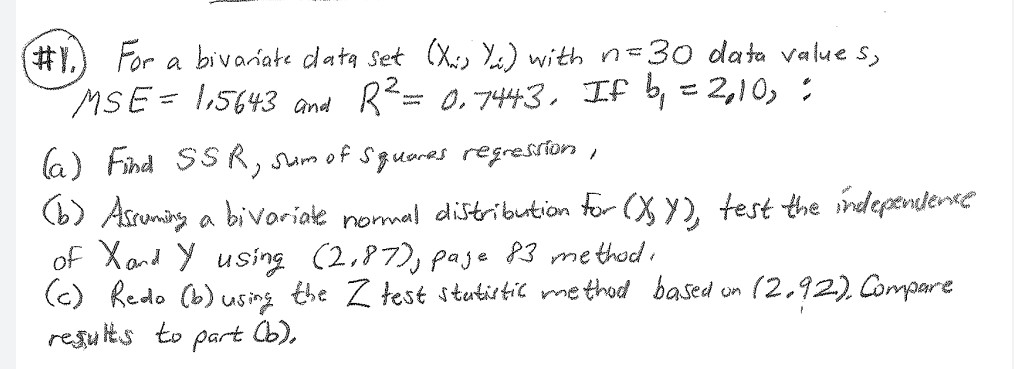 #1.) For a bivariate data set (Xi, Yi) with n=30 data values,
MSE = 1.5643 and R² = 0.7443. If b₁ = 2.10, :
(a) Find SSR, sum of squares regression,
(b) Assuming a bivariate normal distribution for (X, Y), test the independence
of X and Y using (2.87), page 83 method.
(c) Redo (b) using the Z test statistic method based on (2.92). Compare
results to part (b).